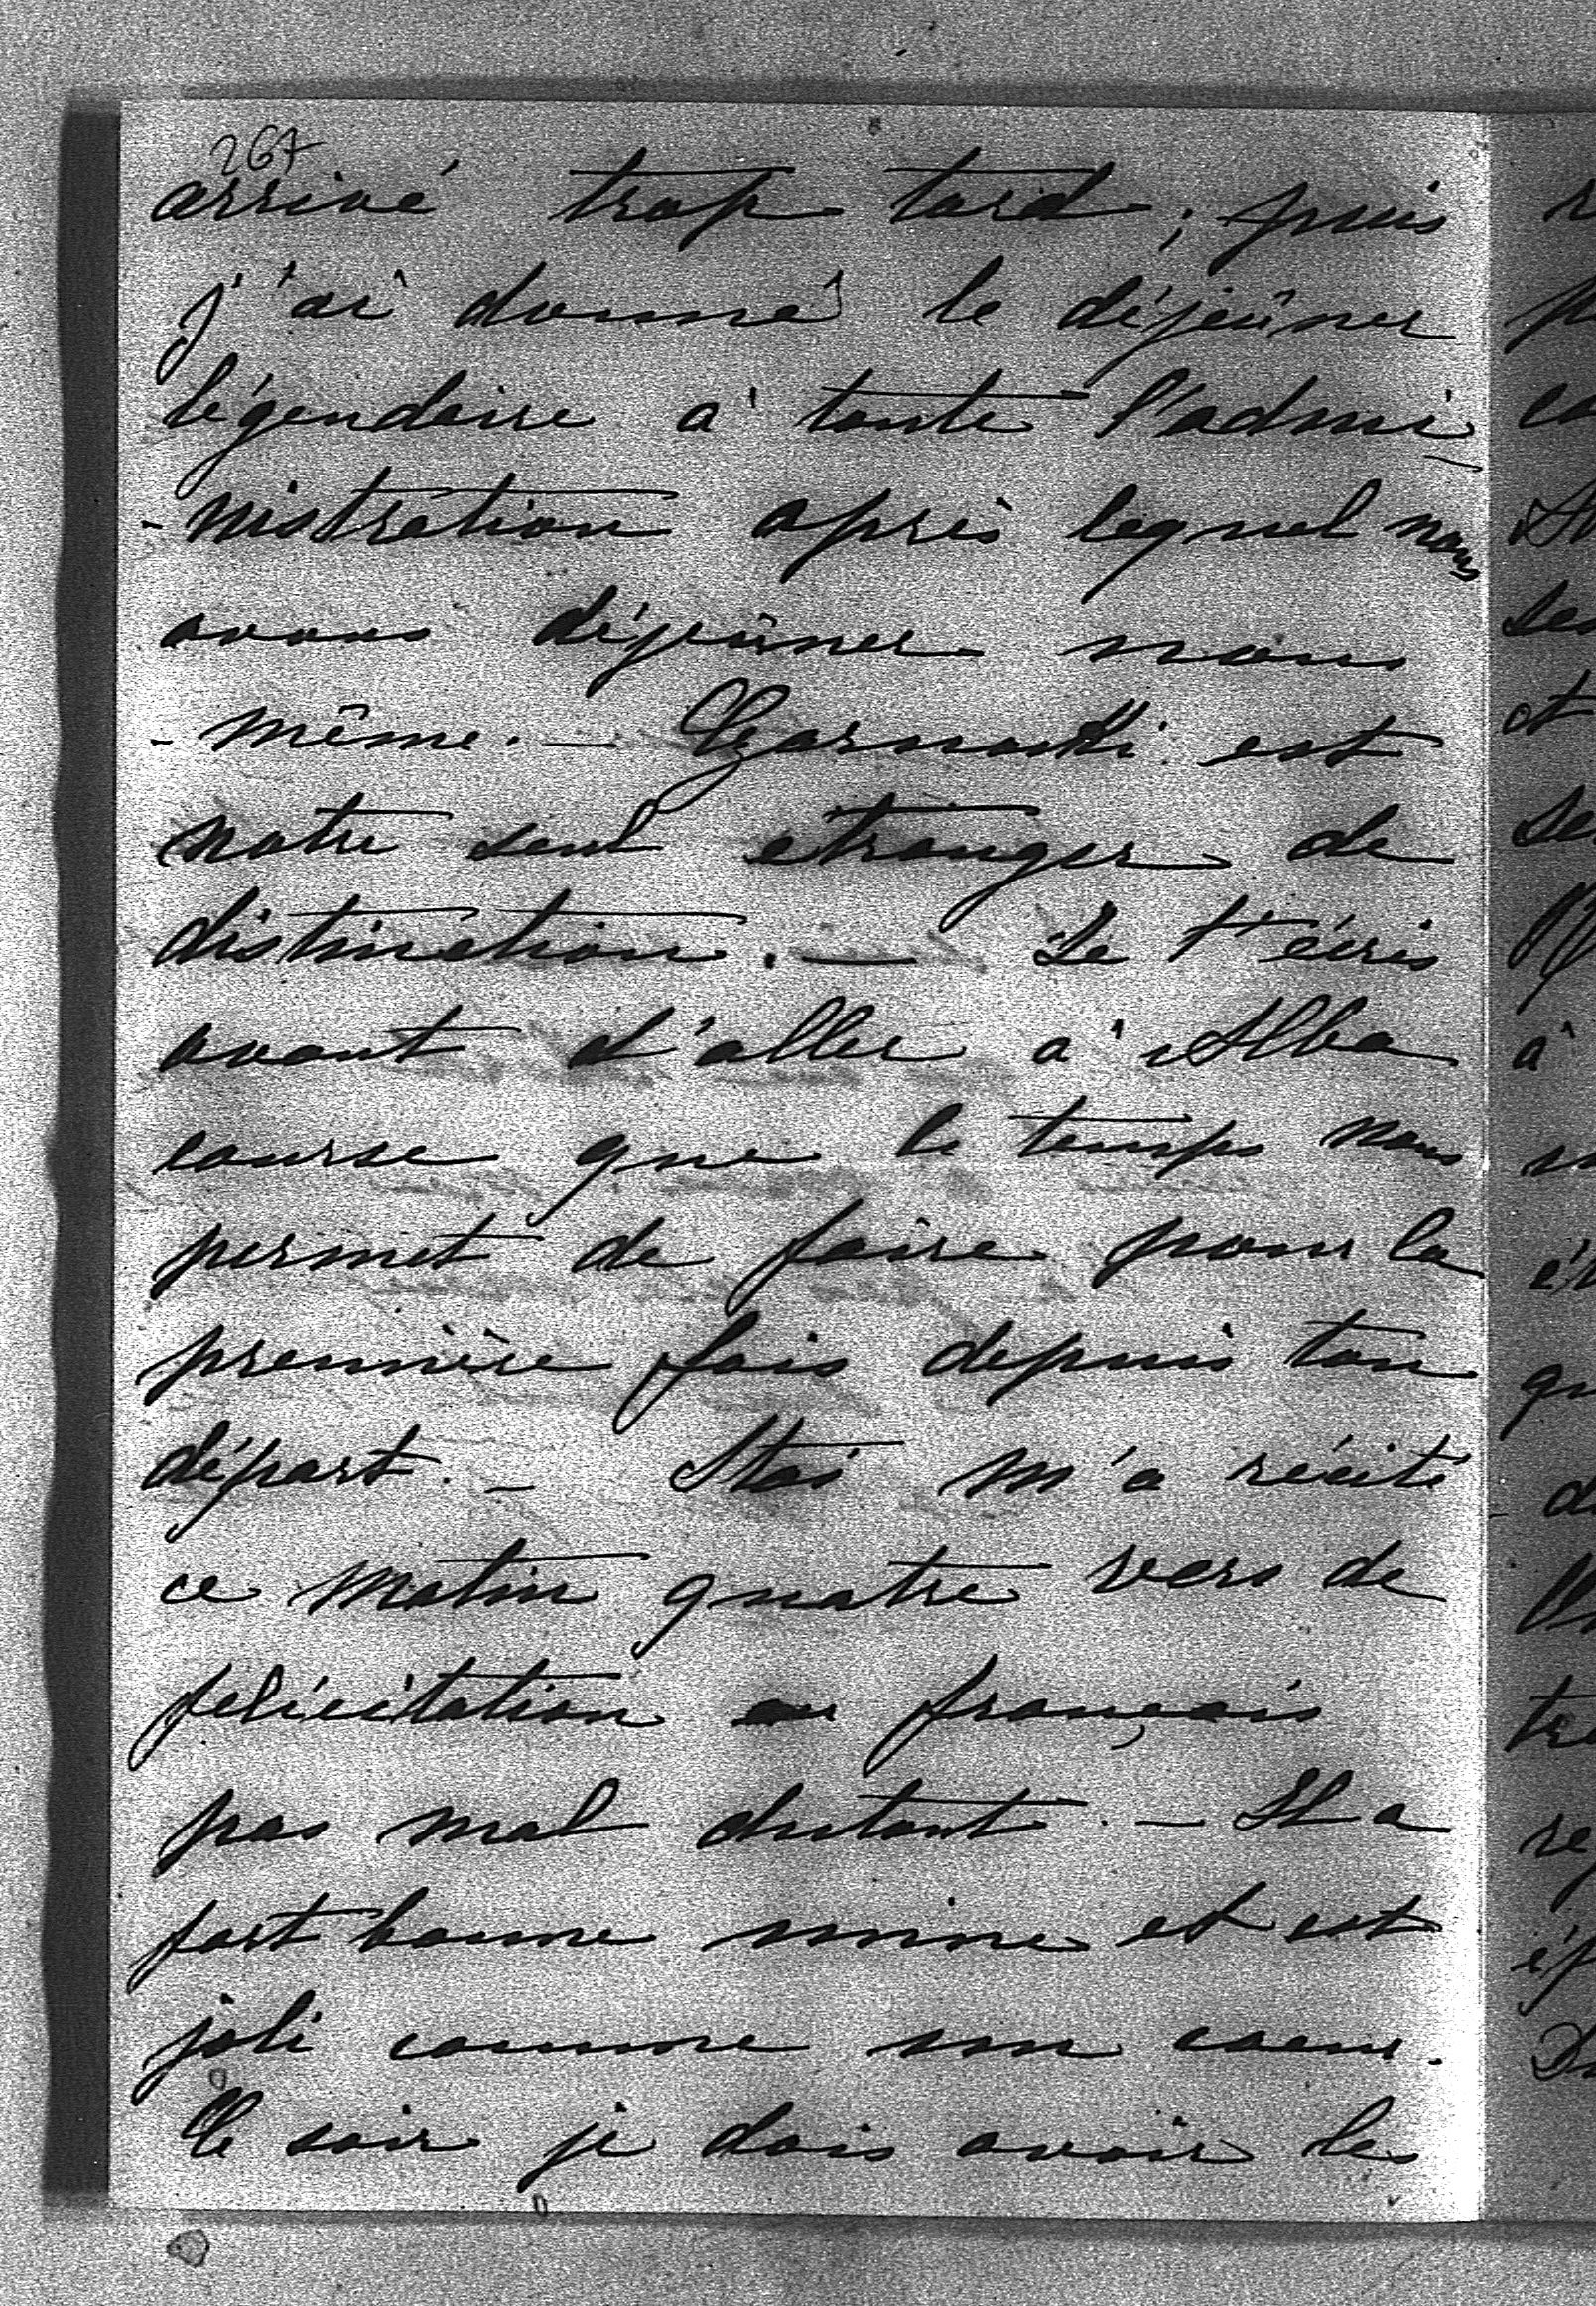 267
arrivé trop tard; puis
j'ai donné le déjeûner
légendaire à toute l'admi
-nistration après lequel nous
avons déjeûner nous
-même. — Czarnocki est
notre seul etranger de
distinction. — Je t'écris
avant d'aller à Alba
course que le temps nous
permet de faire pour la
première fois depuis ton
départ. — Stas m'a récité
ce matin quatre vers de
félicitation en français
pas mal du tout. — Il a
fort bonne mine et est
joli comme un coeur.
Ce soir je dois avoir les